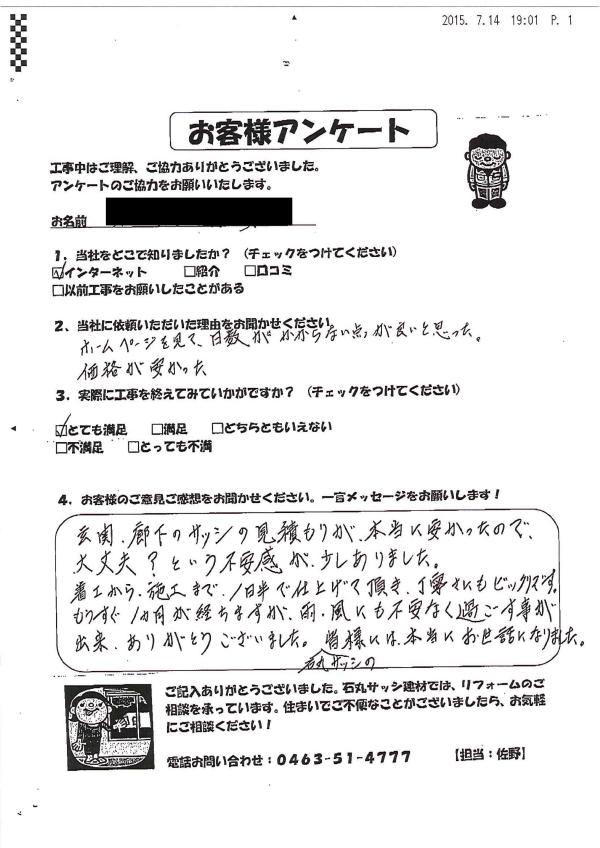 2015. 7.14 19:01 P. 1
お客様アンケート
工事中はご理解、ご協力ありがとうございました。
アンケートのご協力をお願いいたします。
お名前
1．当社をどこで知りましたか？（チェックをつけてください）
☑インターネット □紹介 □口コミ
□以前工事をお願いしたことがある
2、当社に依頼いただいた理由をお聞かせください
ホームページを見て、日数がかからない点が良いと思った。
価格が安かった
3．実際に工事を終えてみていかがですか？（チェックをつけてください）
☑とても満足 □満足 □どちらともいえない
□不満足 □とっても不満
4．お客様のご意見ご感想をお聞かせください。一言メッセージをお願いします！
玄関、廊下のサッシの見積もりが、本当に安かったので、
大丈夫？という不安感が、少しありました。
着工から、施工まで、1日半で仕上げて頂き、丁寧さにもビックリです。
もうすぐ1ヵ月が経ちますが、雨・風にも不安なく過ごす事が
出来、ありがとうございました。石丸サッシの皆様には、本当にお世話になりました。
ご記入ありがとうございました。石丸サッシ建材では、リフォームのご
相談を承っています。住まいでご不便なことがございましたら、お気軽
にご相談ください！
電話お問い合わせ：0463-51-4777 【担当：佐野】